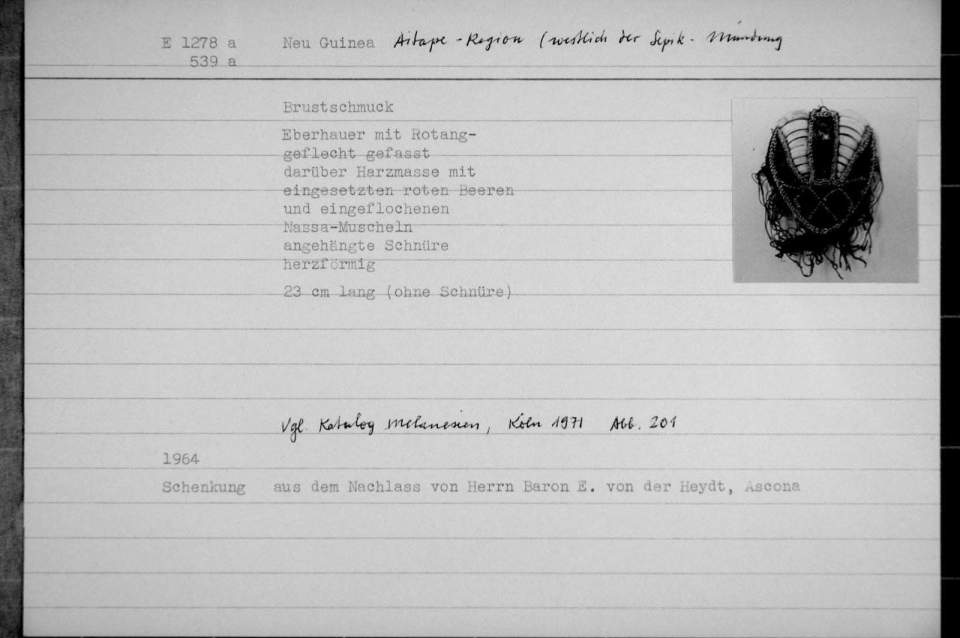 E 1278 a Neu Guinea Aitape-Region (westlich der Sepik-Mündung
539 a
Brustschmuck
Eberhauer mit Rotang-
geflecht gefasst
darüber Harzmasse mit
eingesetzten roten Beeren
und eingeflochenen
Nassa-Muscheln
angehängte Schnüre
herzförmig
23 cm lang (ohne Schnüre)
Vgl. Katalog Melanesien, Köln 1971 Abb. 201
1964
Schenkung aus dem Nachlass von Herrn Baron E. von der Heydt, Ascona